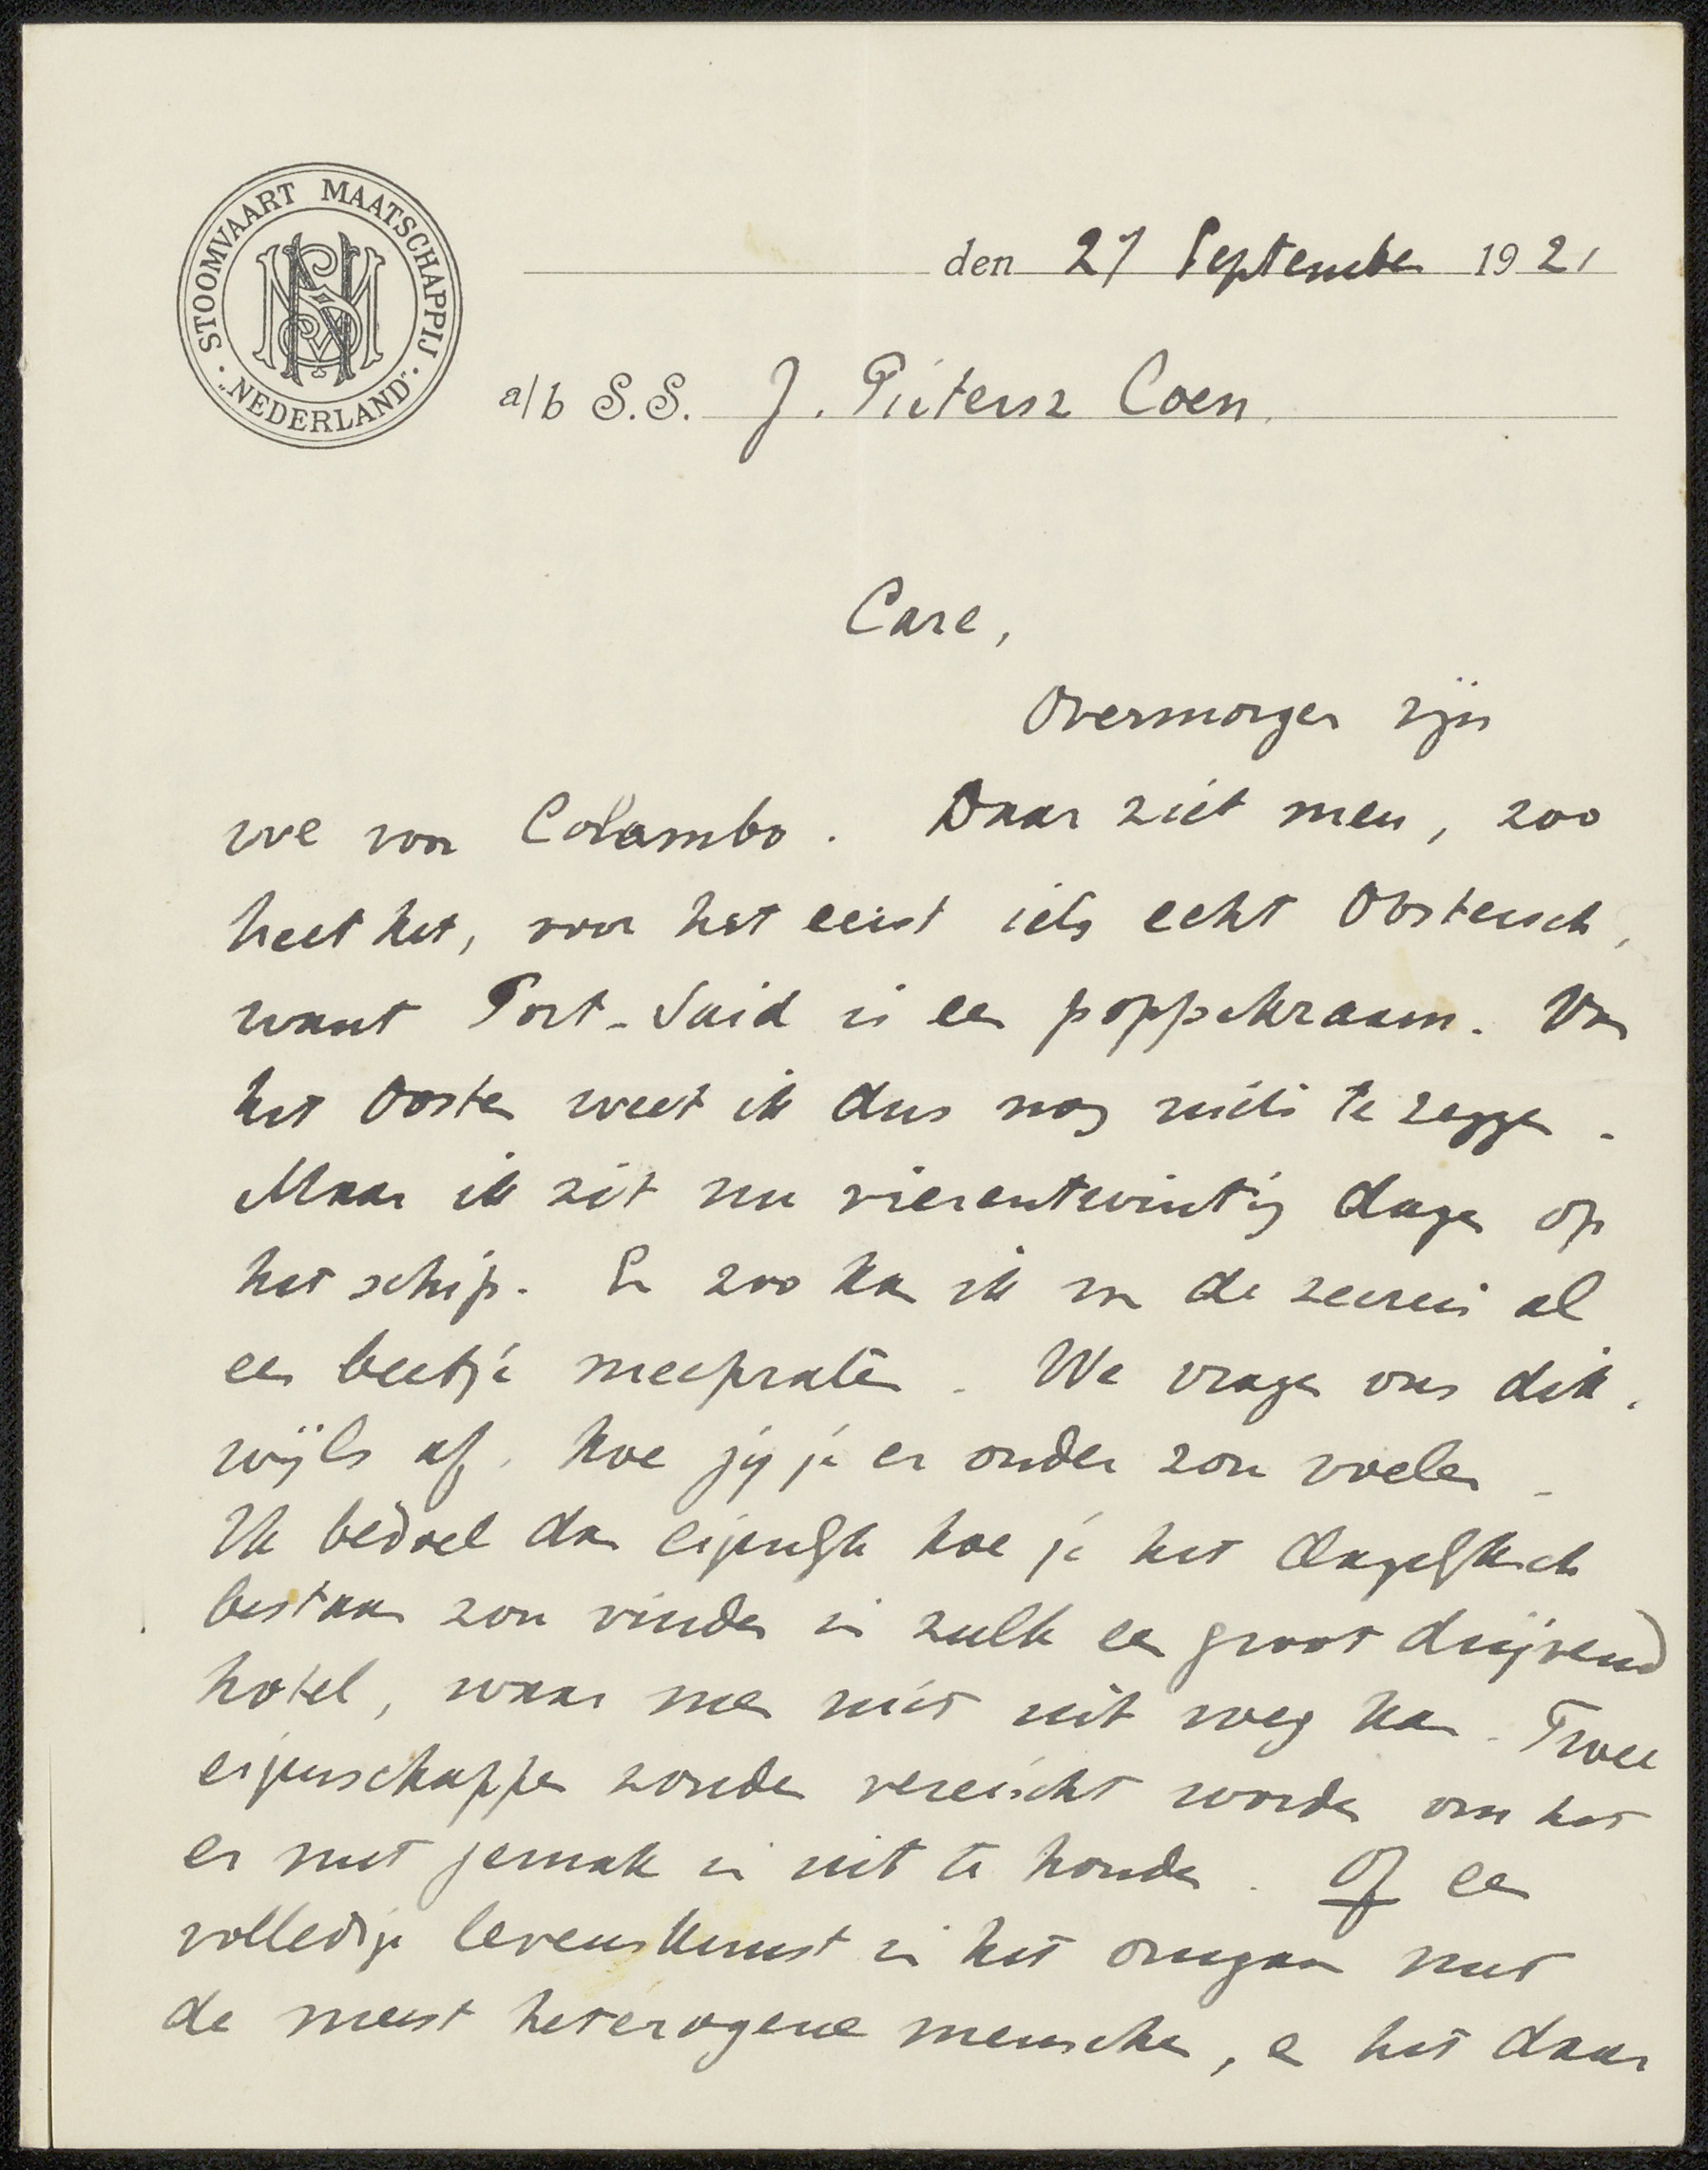 STOOMVAART MAATSCHAPPIJ
„NEDERLAND".
den 27 September 1921
a/b S.S. J. Pietersz Coen.
Care,
Overmorgen zijn
we voor Colombo. Daar ziet men, zoo
heet het, voor het eerst iets echt Oostersch,
want Port-Said is een poppekraam. Van
het Oosten weet ik dus nog niets te zeggen.
Maar ik zit nu vierentwintig dagen op
het schip. En zoo kan ik van de zeereis al
een beetje meepraten. We vragen ons dik-
wijls af, hoe jij je er onder zou voelen.
Ik bedoel dan eigenlijk hoe je het dagelijksch
bestaan zou vinden in zulk een groot drijvend
hotel, waar men niet uit weg kan. Twee
eigenschappen zouden vereischt worden om het
er met gemak in uit te houden. Of een
volledige levenskunst in het omgaan met
de meest heterogene menschen, en het daar